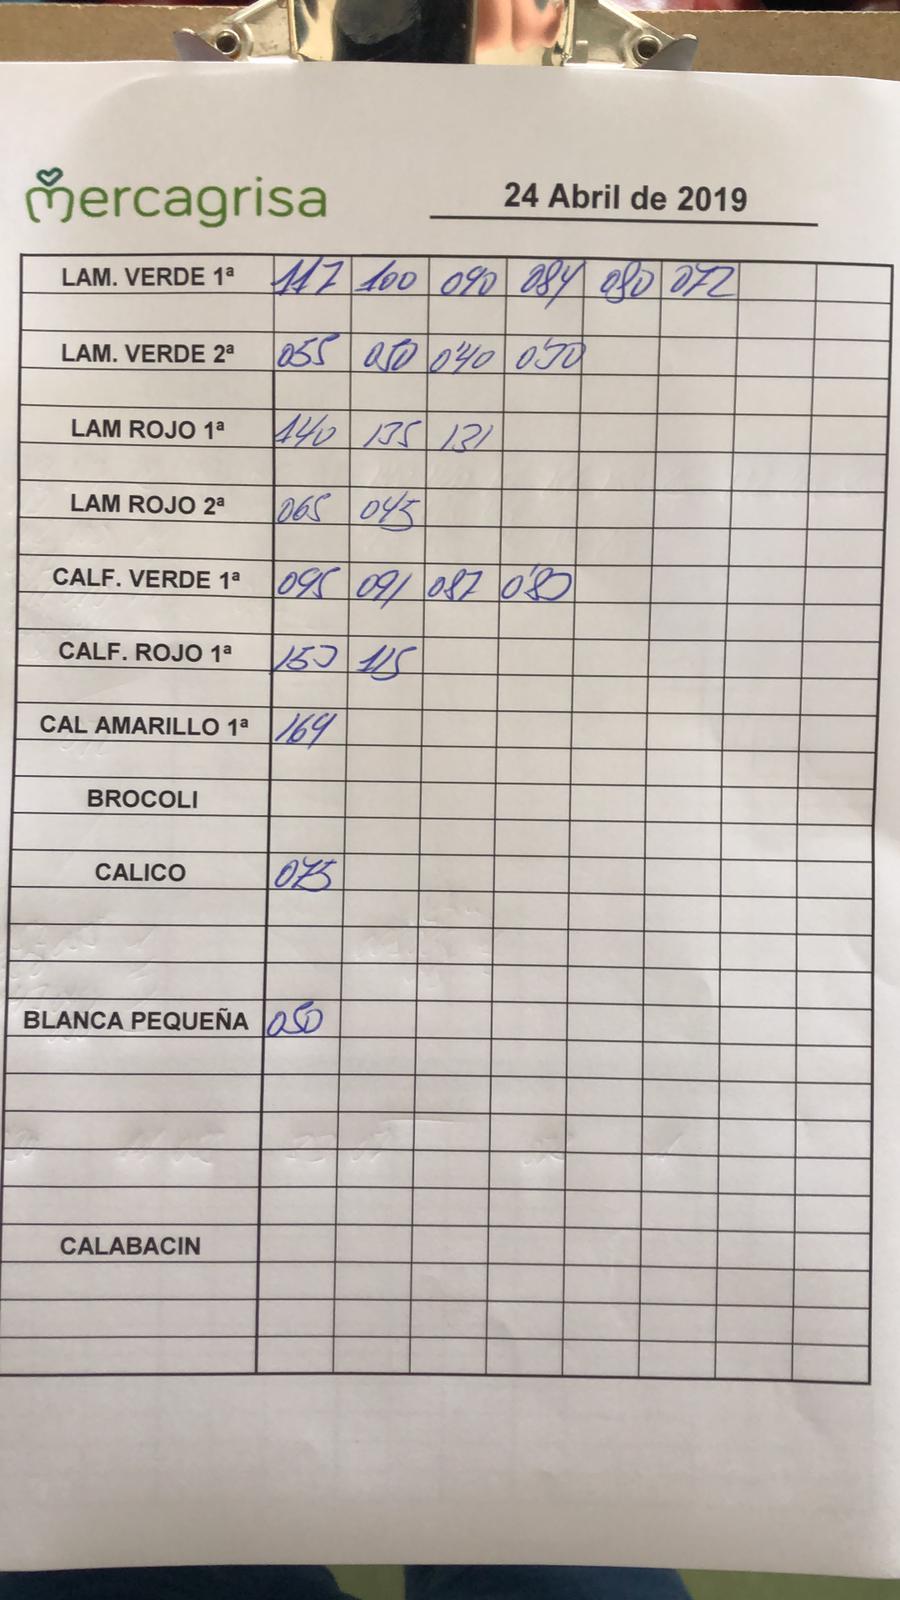 mercagrisa
24 Abril de 2019
LAM. VERDE 1ª 117 100 090 084 080 072
LAM. VERDE 2ª 055 050 0'40 0'30
LAM ROJO 1ª 140 135 131
LAM ROJO 2ª 065 045
CALF. VERDE 1ª 095 091 087 0'80
CALF. ROJO 1ª 150 115
CAL AMARILLO 1ª 169
BROCOLI
CALICO 075
BLANCA PEQUEÑA 050
CALABACIN